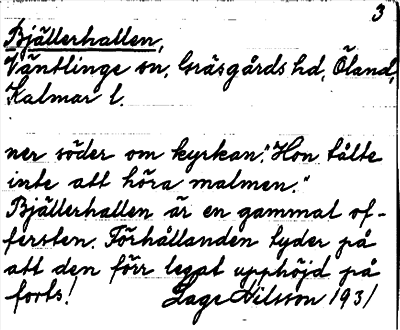 3
Bjällerhallen,
Väntlinge sn. Gräsgårds hd, Öland,
Kalmar l.
ner söder om kyrkan. "Hon tålte
inte att höra malmen."
Bjällerhallen är en gammal of-
fersten. Förhållanden tyder på
att den förr legat upphöjd på
forts! Lage Nilsson 1931